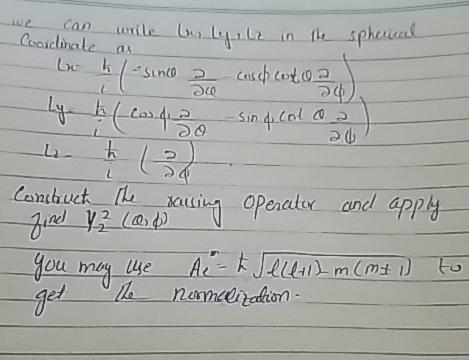 we can write Lx, Ly, Lz in the spherical
Coordinate as
Lx = ħ/i ( -sinφ ∂/∂θ cosφ cotθ ∂/∂φ )
Ly = ħ/i ( cosφ ∂/∂θ - sinφ cot θ ∂/∂φ )
Lz - ħ/i ( ∂/∂φ ).
Construct the raising operator and apply
find Y₂² (θ, φ)
you may use Aℓᵐ = ħ √ℓ(ℓ+1) - m(m±1) to
get the normalization.